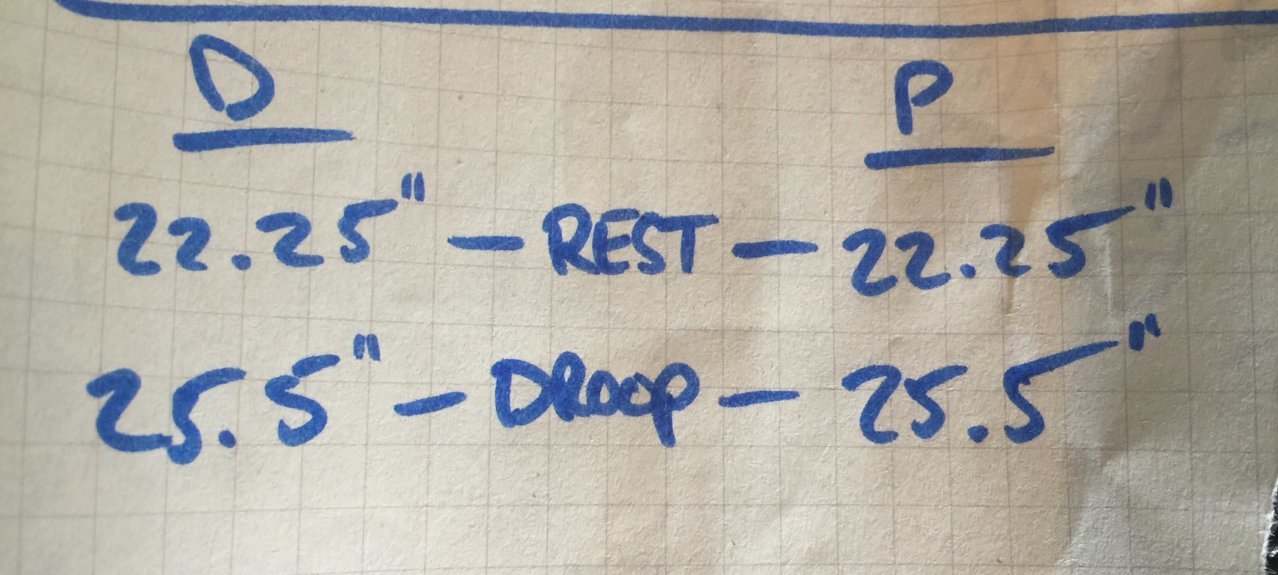 D P
22.25" - REST - 22.25"
25.5" - DROOP - 25.5"